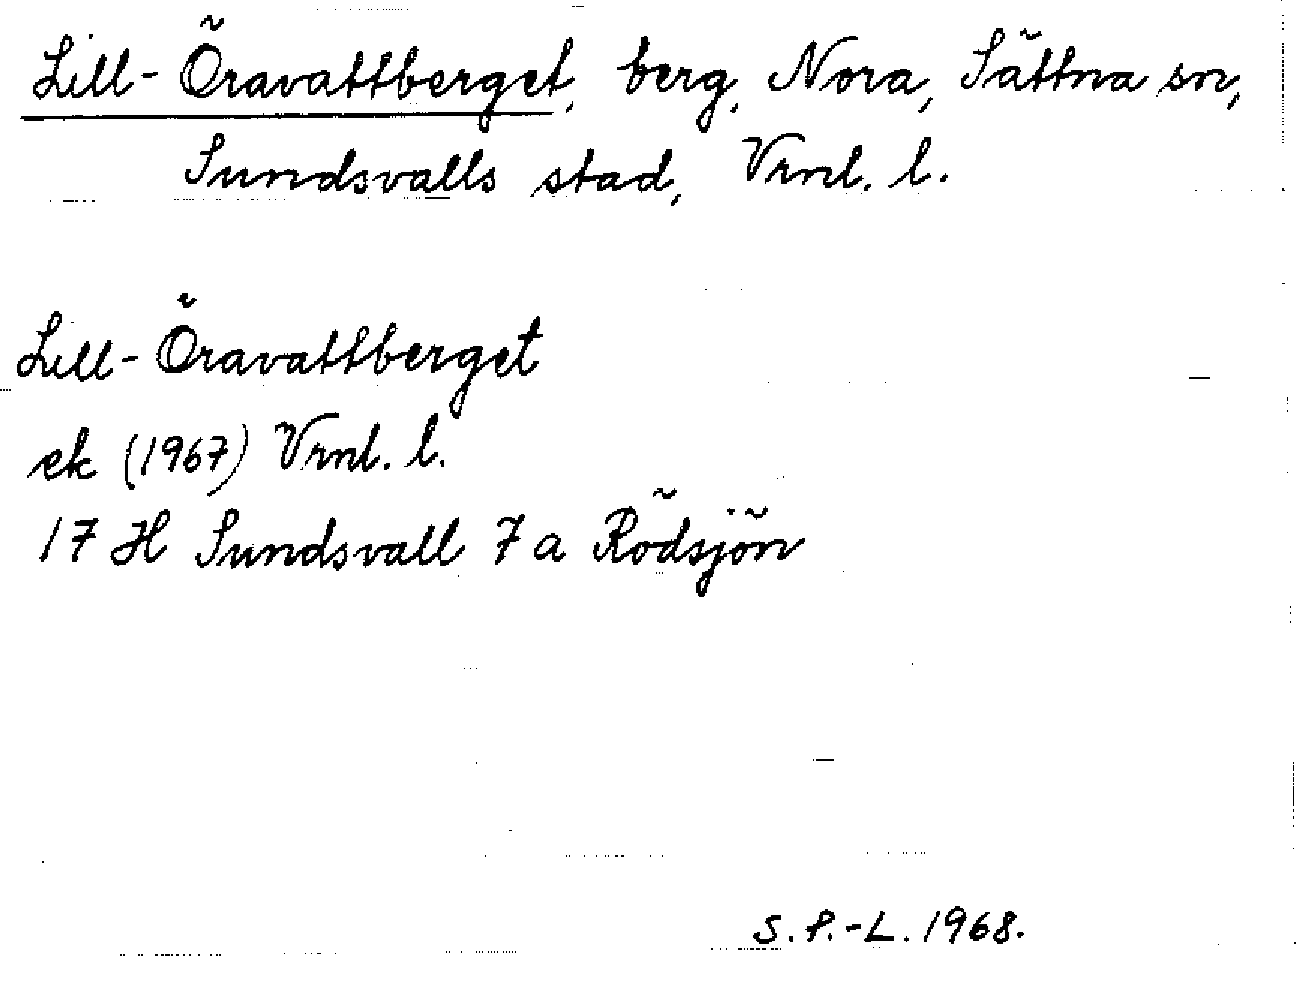 Lill-Öravattberget, berg, Nora, Sättna sn,
Sundsvalls stad, Vrnl. l.
Lill-Öravattberget
ek (1967) Vrnl. l.
17 H Sundsvall 7 a Rödsjön
S. P.-L. 1968.